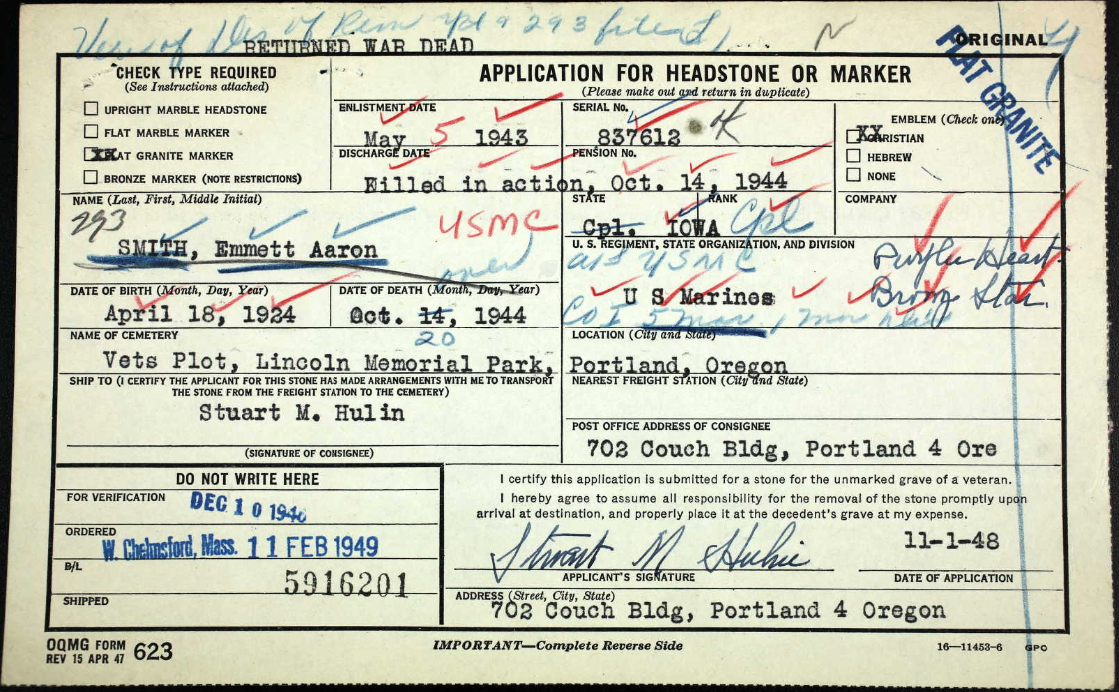 View of Des of Rem 293 filed
RETURNED WAR DEAD
N
ORIGINAL
FLAT GRANITE
CHECK TYPE REQUIRED
(See Instructions attached)
UPRIGHT MARBLE HEADSTONE
FLAT MARBLE MARKER
XXAT GRANITE MARKER
BRONZE MARKER (NOTE RESTRICTIONS)
APPLICATION FOR HEADSTONE OR MARKER
(Please make out and return in duplicate)
ENLISTMENT DATE
May 5 1943
SERIAL No.
837612
EMBLEM (Check one)
XX CHRISTIAN
HEBREW
NONE
DISCHARGE DATE
PENSION No.
Killed in action, Oct. 14, 1944
NAME (Last, First, Middle Initial)
293
SMITH, Emmett Aaron
USMC
over
STATE
RANK
COMPANY
Cpl. IOWA Cpl
U. S. REGIMENT, STATE ORGANIZATION, AND DIVISION
USMC
Purple Heart
U S Marines
Bronze Star.
Co I 5 Mar, 1 Mar Div
DATE OF BIRTH (Month, Day, Year)
April 18, 1924
DATE OF DEATH (Month, Day, Year)
Oct. 14, 1944
20
NAME OF CEMETERY
Vets Plot, Lincoln Memorial Park,
LOCATION (City and State)
Portland, Oregon
SHIP TO (I CERTIFY THE APPLICANT FOR THIS STONE HAS MADE ARRANGEMENTS WITH ME TO TRANSPORT
THE STONE FROM THE FREIGHT STATION TO THE CEMETERY)
Stuart M. Hulin
(SIGNATURE OF CONSIGNEE)
NEAREST FREIGHT STATION (City and State)
POST OFFICE ADDRESS OF CONSIGNEE
702 Couch Bldg, Portland 4 Ore
DO NOT WRITE HERE
FOR VERIFICATION
DEC 10 1948
ORDERED
W. Chelmsford, Mass. 11 FEB 1949
B/L
5916201
SHIPPED
I certify this application is submitted for a stone for the unmarked grave of a veteran.
I hereby agree to assume all responsibility for the removal of the stone promptly upon
arrival at destination, and properly place it at the decedent's grave at my expense.
Stuart M Hulin
11-1-48
APPLICANT'S SIGNATURE
DATE OF APPLICATION
ADDRESS (Street, City, State)
702 Couch Bldg, Portland 4 Oregon
OQMG FORM 623
REV 15 APR 47
IMPORTANT—Complete Reverse Side
16—11453-6 GPO